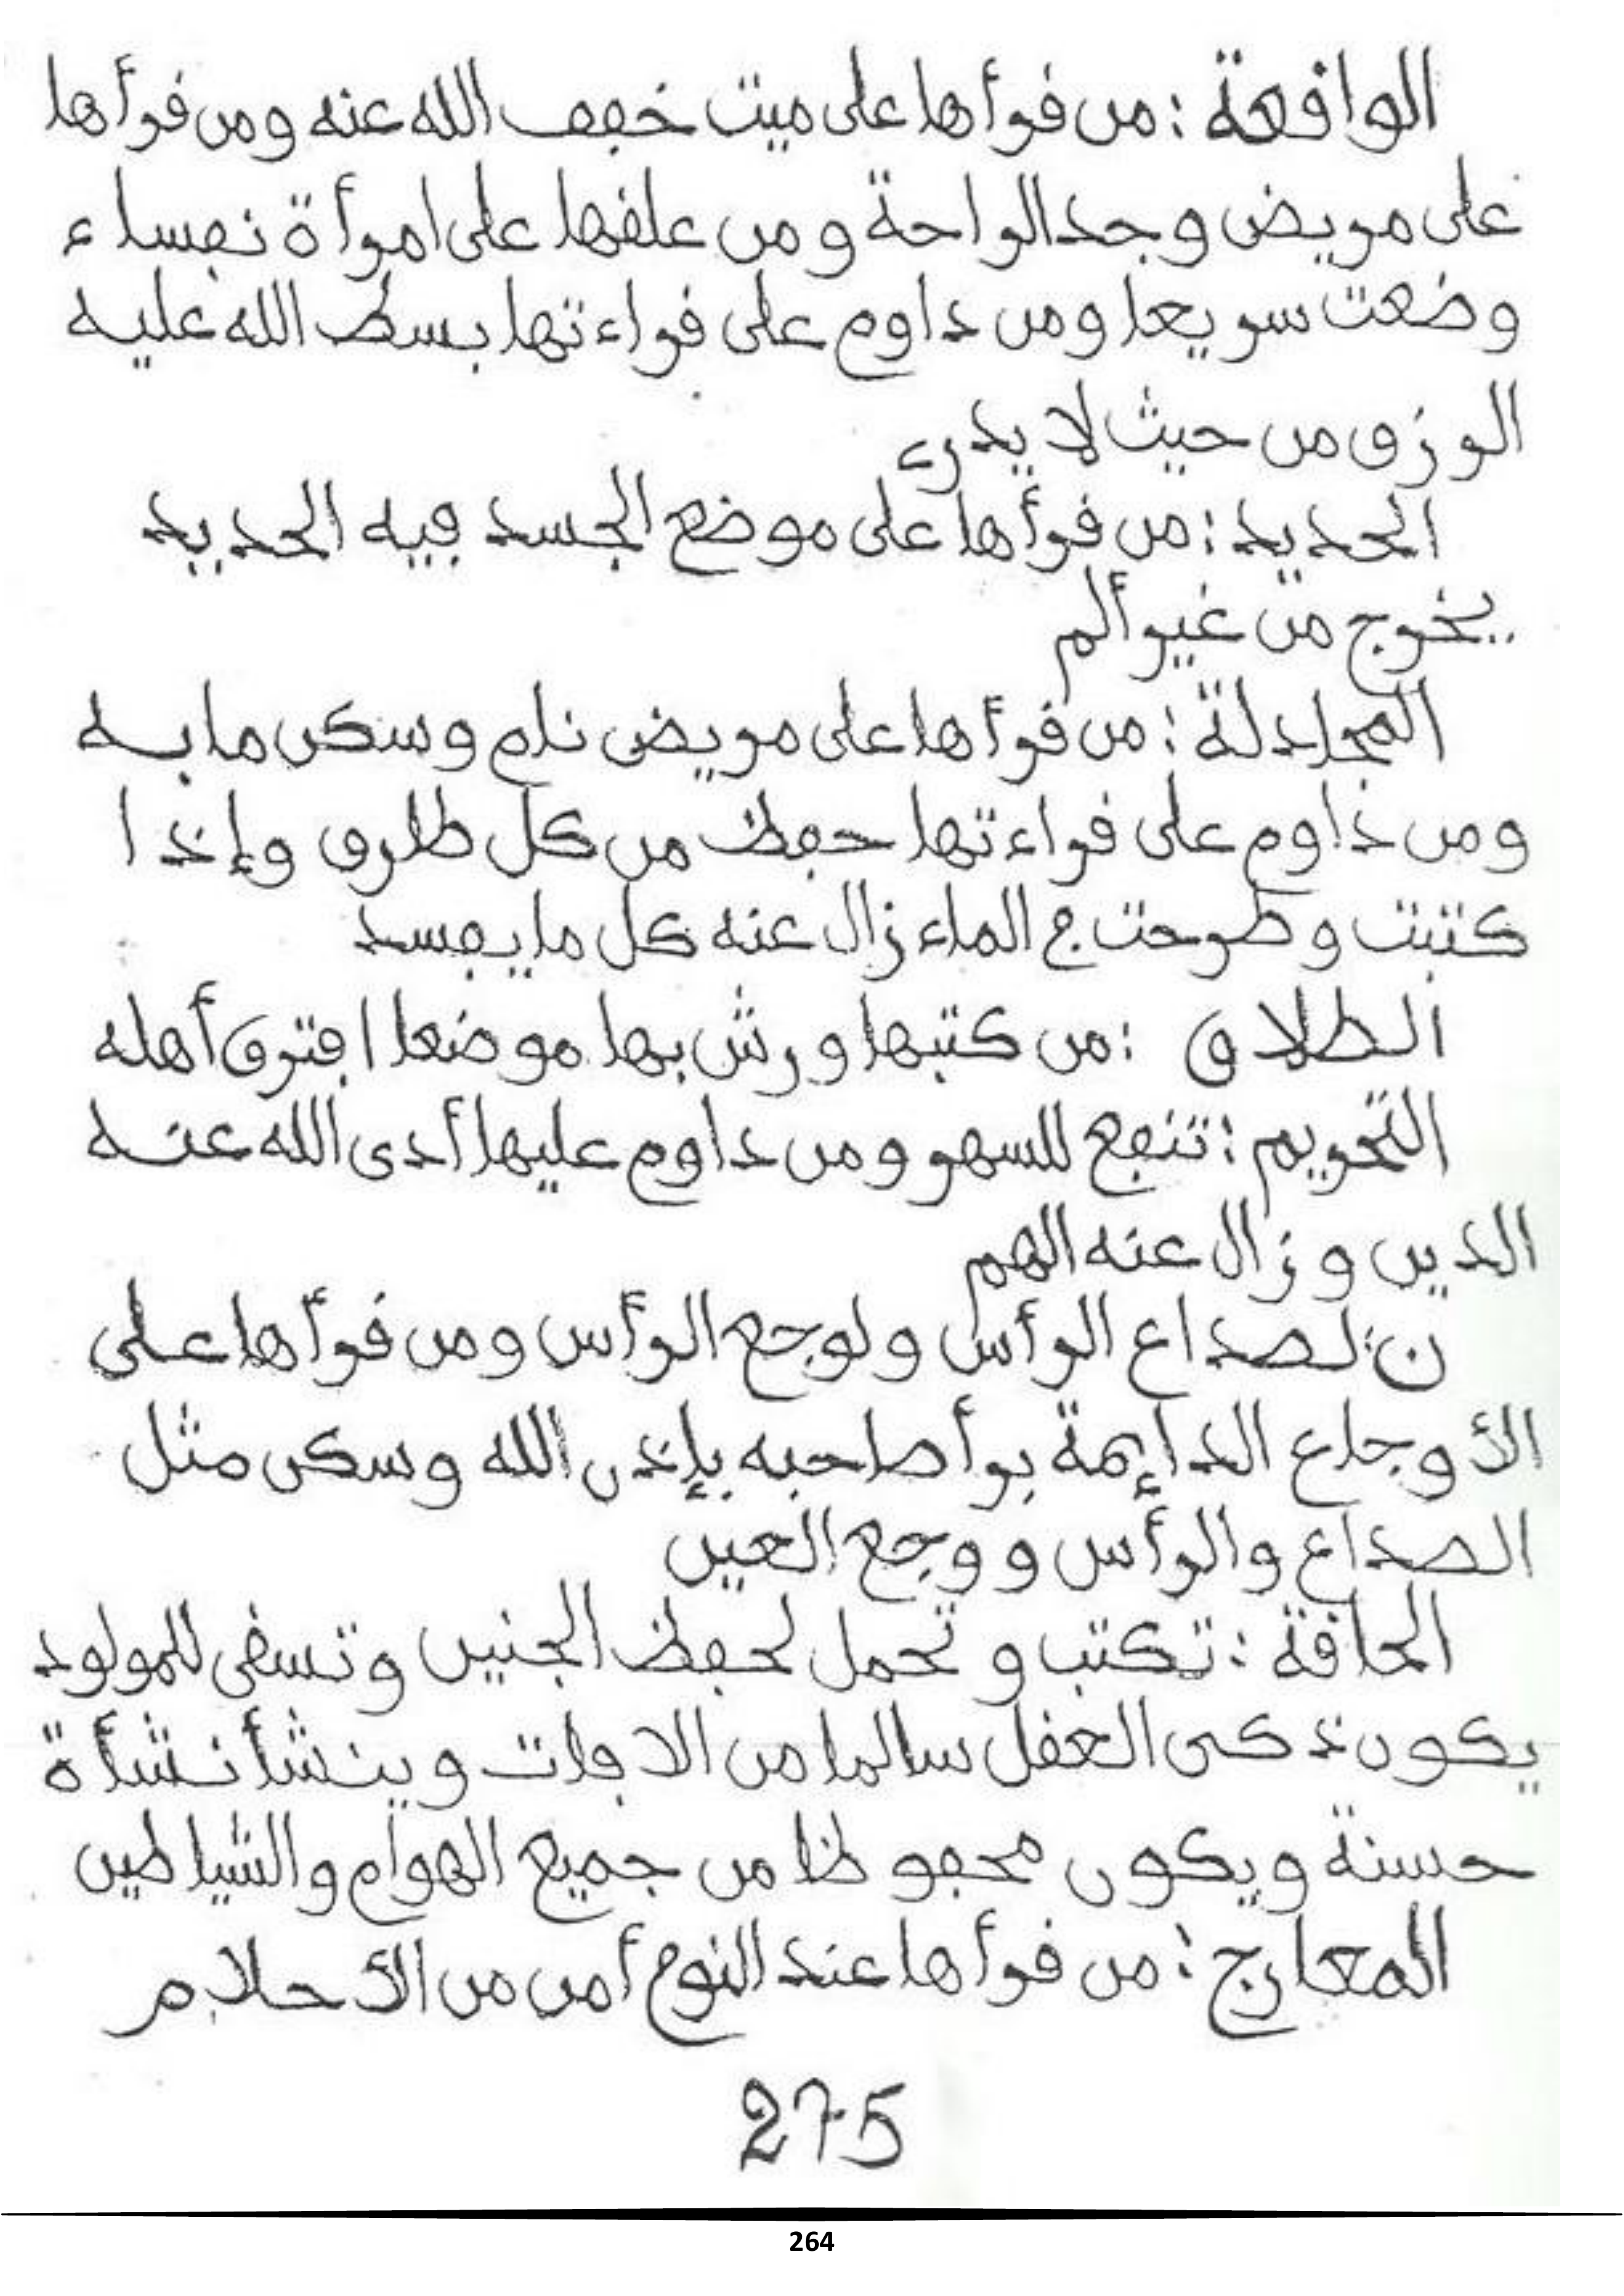 الواقعة : من قرأها على ميت خفف الله عنه ومن قرأها
على مريض وجد الراحة ومن علقها على امرأة نفساء
وضعت سريعا ومن داوم على قراءتها بسط الله عليه
الرزق من حيث لا يدري
الحديد : من قرأها على موضع الجسد فيه الحديد
يخرج من غير ألم
المجادلة : من قرأها على مريض نام وسكن ما به
ومن داوم على قراءتها حفظ من كل طارق وإذا
كتبت وطرحت في الماء زال عنه كل ما يفسد
الطلاق : من كتبها ورش بها موضعا افترق أهله
التحريم : تنفع للسهر ومن داوم عليها أدى الله عنه
الدين وزال عنه الهم
ن : لصداع الرأس ولوجع الرأس ومن قرأها على
الأوجاع الدايمة برأ صاحبه بإذن الله وسكن مثل
الصداع والرأس ووجع العين
الحاقة : تكتب وتحمل لحفظ الجنين وتسقى للمولود
يكون ذكى العقل سالما من الافات وينشأ نشأة
حسنة ويكون محفوظا من جميع الهوام والشياطين
المعارج : من قرأها عند النوم أمن من الأحلام
275
264